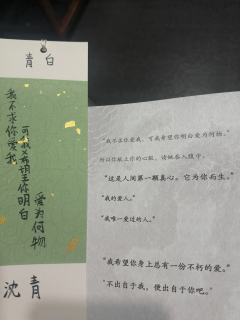 青白
我不求你爱我
可我×希望你明白
爱为何物
沈青
“我不求你爱我，可我希望你明白爱为何物。”
所以你献上你的心脏，请她吞入腹中。
“这是人间第一颗真心。它为你而生。”
“我的爱人。”
“我唯一爱过的人。”
“我希望你身上总有一份不朽的爱。”
“不出自于我，便出自于你吧。”